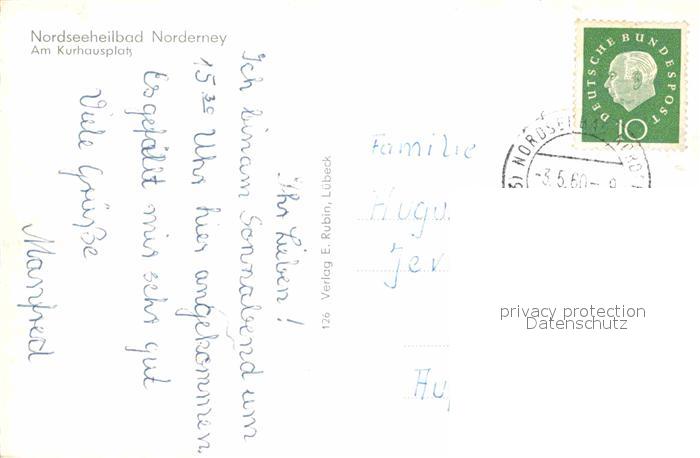 Nordseeheilbad Norderney
Am Kurhausplatz
Ihr Lieben!
Ich bin am Sonnabend um
15³⁰ Uhr hier angekommen.
Es gefällt mir sehr gut
Viele Grüße
Manfred
126 Verlag E. Rubin, Lübeck
DEUTSCHE BUNDESPOST
10
-3.5.60-
Familie
privacy protection
Datenschutz